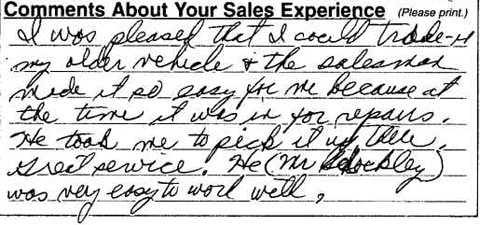 Comments About Your Sales Experience (Please print.)
I was pleased that I could trade-in
my older vehicle & the salesman
made it so easy for me because at
the time it was in for repairs.
He took me to pick it up
Great service. He (Mr
was very easy to work well,